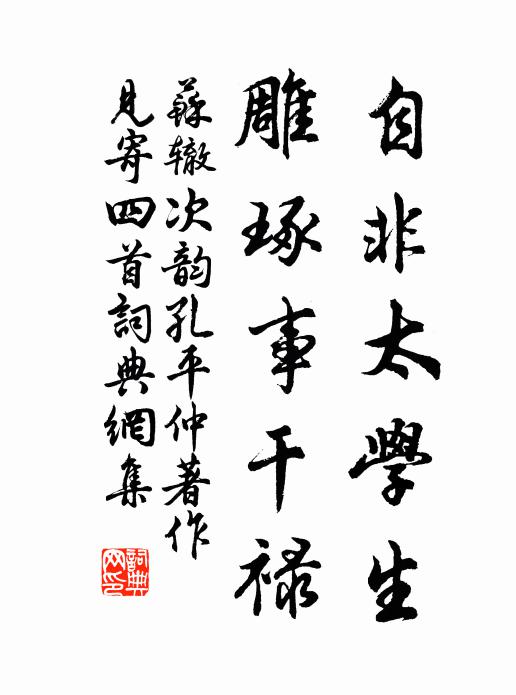 自非太學生
雕琢事干禄
蘇辙次韵孔平仲著作
見寄四首詞典網集
詞典網印